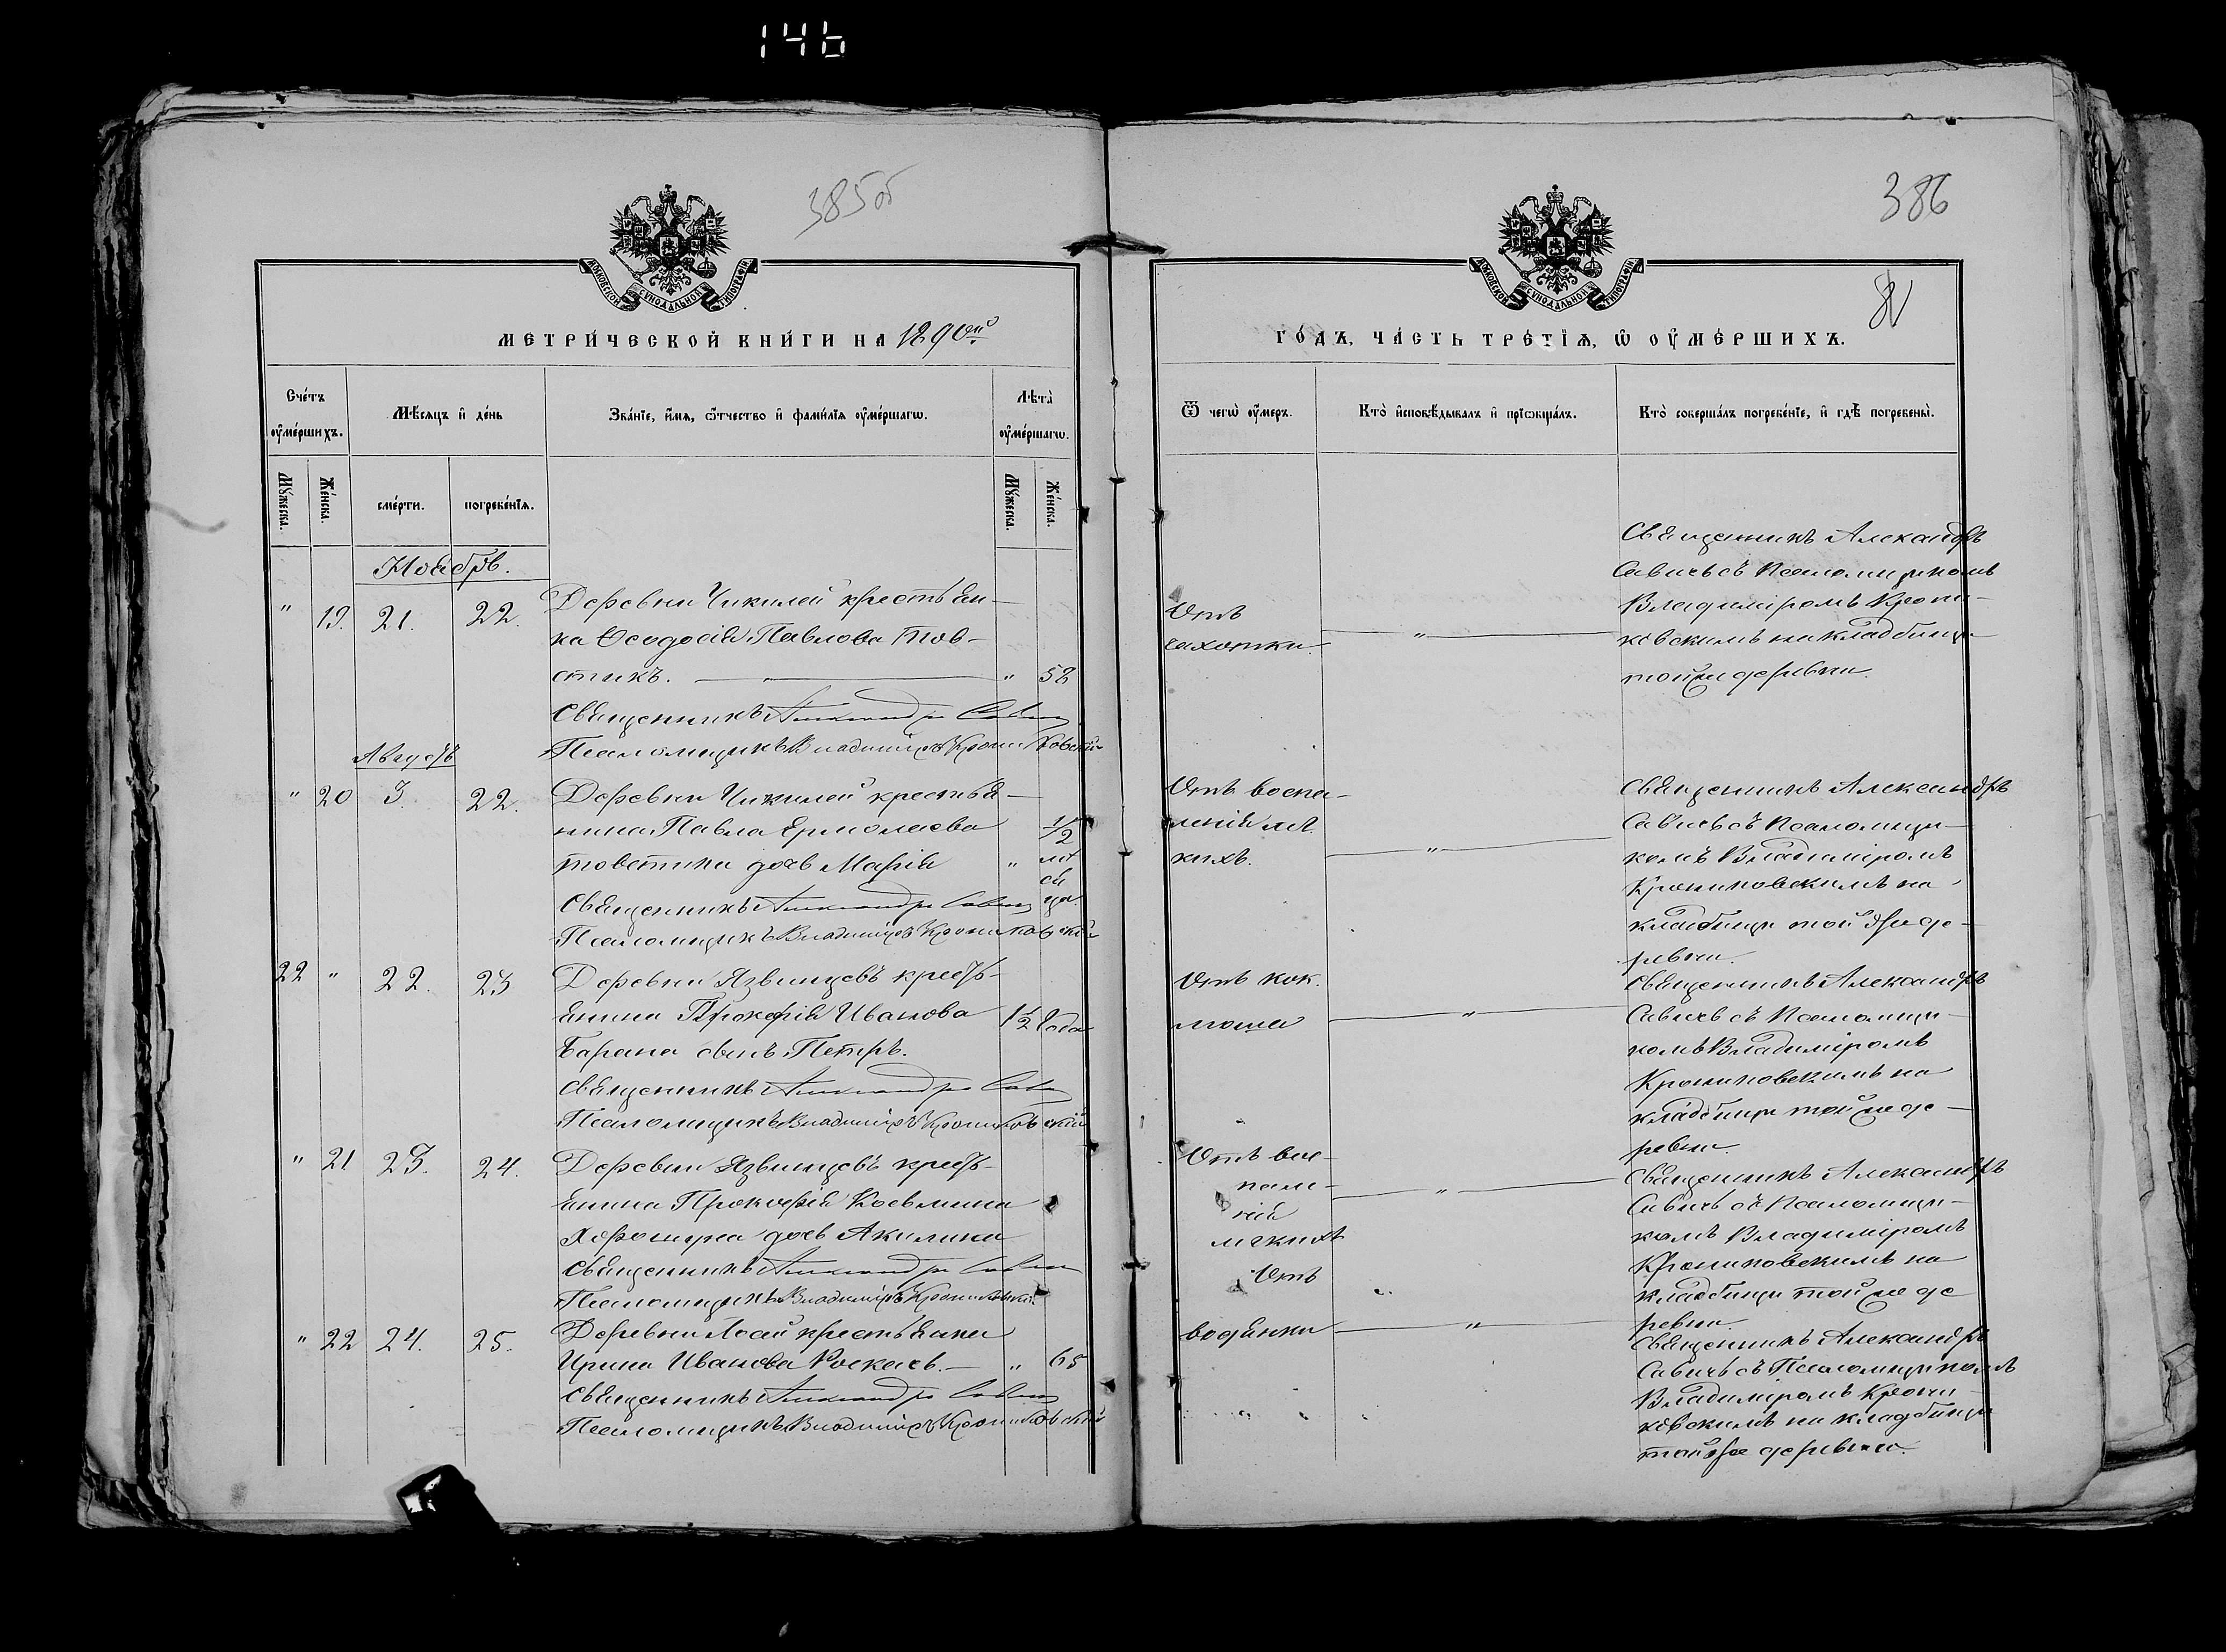 146
385об
МЕТРИ́ЧЕСКОЙ КНИ́ГИ НА 1890ый
Сче́тъ оумéршихъ.
Мѣ́сяцъ и҆ де́нь
Зва́нїе, и҆́мѧ, ѻ҆́тчество и҆ фами́лїѧ оу҆ме́ршагѡ.
Лѣ́та оу҆ме́ршагѡ.
Мꙋ́жеска.
Же́нска.
сме́рти.
погребе́нїѧ.
Мꙋ́жеска.
Же́нска.
Ноябрь.
" 19. 21. 22. Деревни Чикилей крестьян-
ка Ѳеодосія Павлова Тов-
стикъ. " 58
Священникъ Александръ Савичъ
Псаломщикъ Владиміръ Крониковскій
Августъ
" 20 3. 22. Деревни Чикилей крестья-
нина Павла Ермолаева
товстика дочь Марія " 1/2 мѣ
ся
ца.
Священникъ Александръ Савичъ
Псаломщикъ Владиміръ Крониковскій
22 " 22. 23 Деревни Язвинцевъ кресть-
янина Прокофія Иванова 1½ года
Барана сынъ Петръ.
Священникъ Александръ Савичъ
Псаломщикъ Владиміръ Крониковскій
" 21 23. 24. Деревни Язвинцевъ кресть-
янина Прокофія Косьмина
дочь Акилина
Священникъ Александръ Савичъ
Псаломщикъ Владиміръ Крониковскій
" 22 24. 25. Деревни Лсай крестьянка
Ирина Иванова " 65
Священникъ Александръ Савичъ
Псаломщикъ Владиміръ Крониковскій
386
ГО́ДЪ, ЧА́СТЬ ТРЕ́ТЇѦ, Ѡ҆ ОУ҆МЕ́РШИХЪ.
Ѿ чегѡ̀ оу҆́меръ.
Кто̀ и҆сповѣ́дывалъ и҆ прїѡбща́лъ.
Кто̀ соверша́лъ погребе́нїе, и҆ гдѣ̀ погребены̀.
Отъ
чахотки. "
Священникъ Александръ
Савичъ съ Псаломщикомъ
Владиміромъ Крони-
ковскимъ на кладбищѣ
той же деревни.
Отъ воспа-
ленія лег
кихъ. "
Священникъ Александръ
Савичъ съ Псаломщи-
комъ Владиміромъ
Крониковскимъ на
кладбищѣ той же де-
ревни.
Отъ кок.
люша "
Священникъ Александръ
Савичъ съ Псаломщи-
комъ Владиміромъ
Крониковскимъ на
кладбищѣ той же де-
ревни.
Отъ вос-
пале-
нія
легкихъ "
Священникъ Александръ
Савичъ съ Псаломщи-
комъ Владиміромъ
Крониковскимъ на
кладбищѣ той же де
ревни.
Отъ
водянки "
Священникъ Александръ
Савичъ съ Псаломщикомъ
Владиміромъ Крони-
ковскимъ на кладбищѣ
той же деревни.